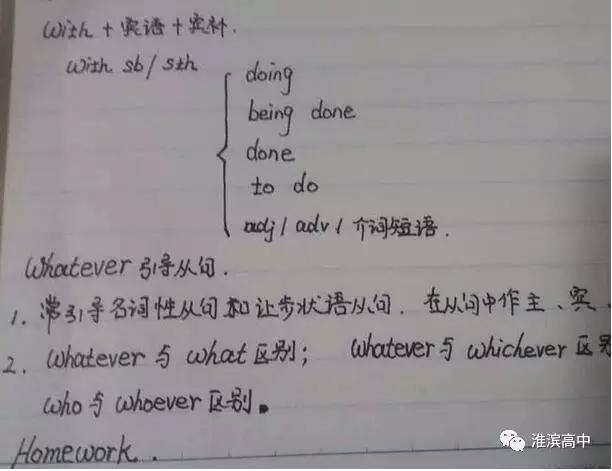 With + 宾语 + 宾补.
With sb / sth
doing
being done
done
to do
adj / adv / 介词短语.
Whatever 引导从句.
1. 常引导名词性从句和让步状语从句. 在从句中作主、宾、
2. Whatever 与 what 区别; Whatever 与 whichever 区别
who 与 whoever 区别.
Homework.
淮滨高中